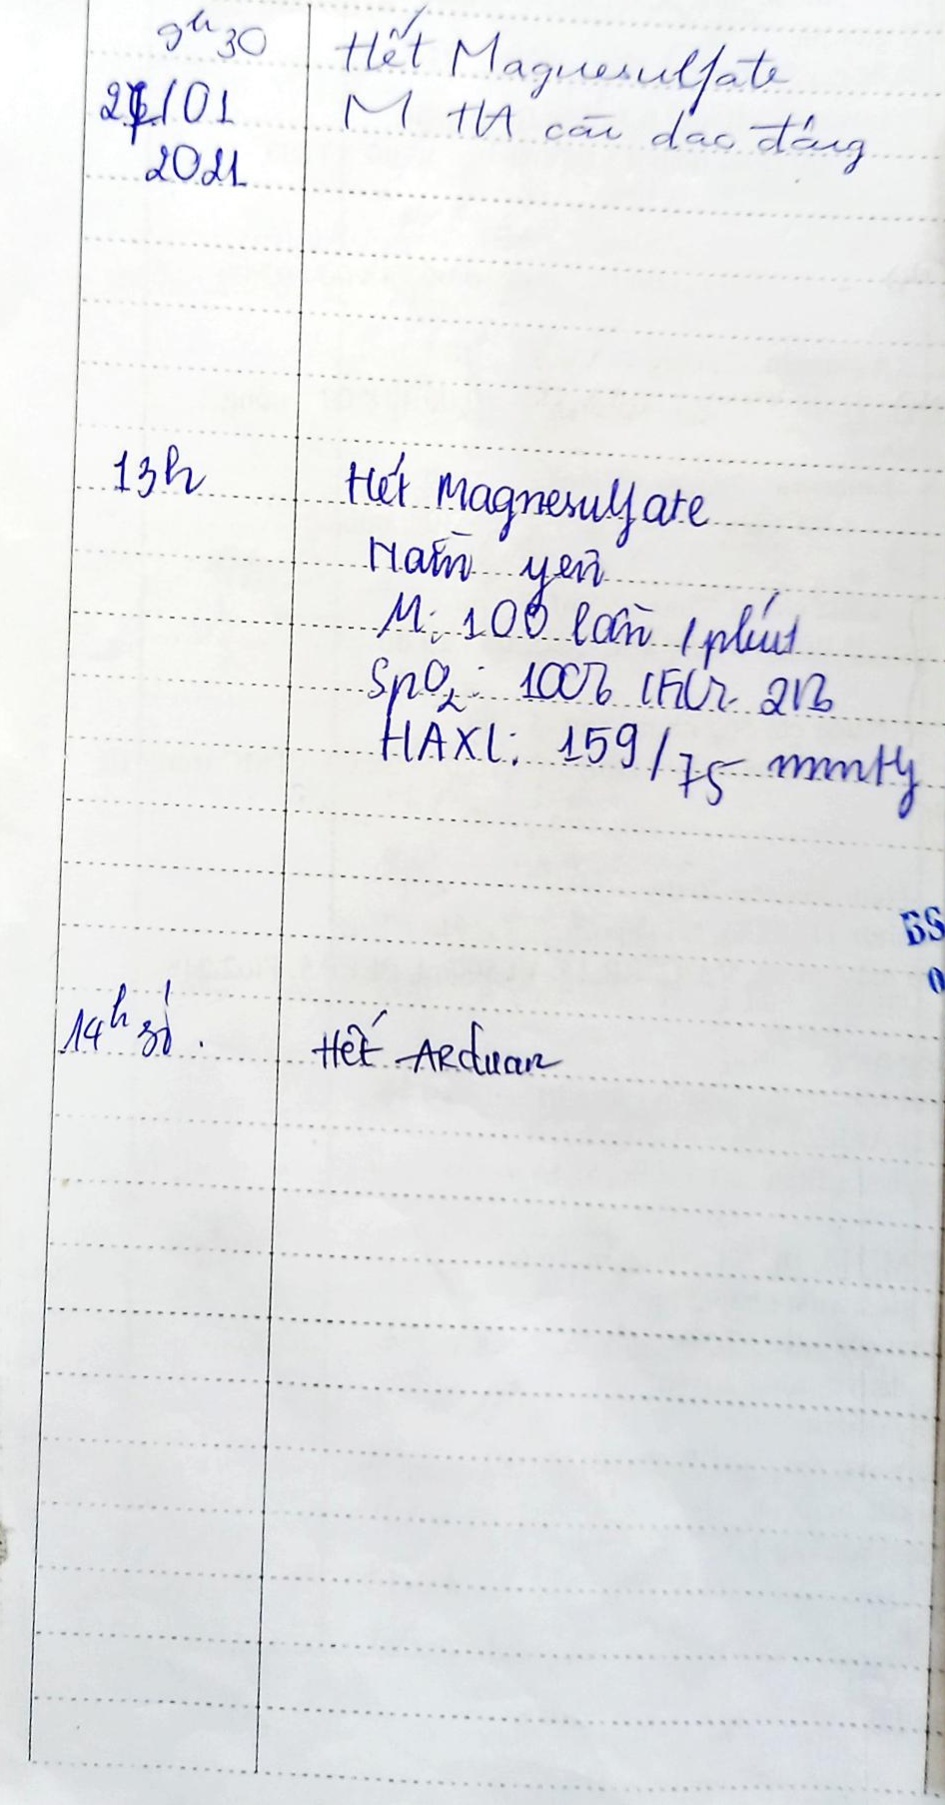 9h30
Hết Magnesulfate
2/01
M HA còn dao động
2021
13h
Hết Magnesulfate
Nằm yên
M: 100 lần / phút
SpO2: 100% 21%
HAXL: 159/75 mmHg
BS
14h30.
Hết Arduan